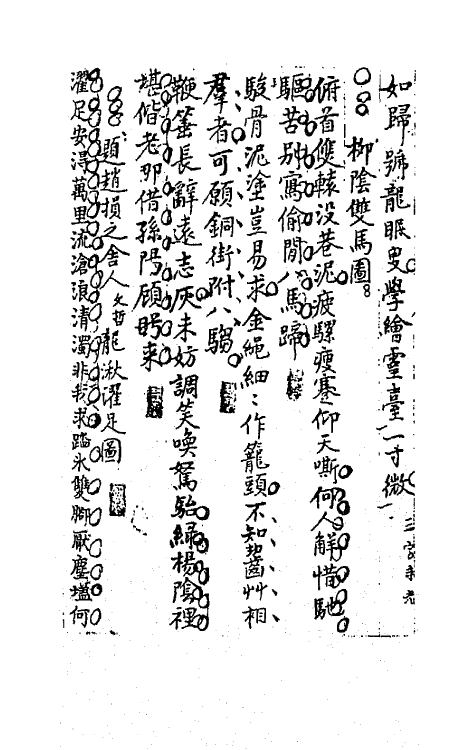 如歸號龍眠叟學繪靈臺一寸微
柳陰雙馬圖
俯首雙轅没巷泥疲騾瘦蹇仰天嘶何人解惜馳
驅苦别寫偷閒八馬蹄
駿骨泥塗豈易求金繩細〻作籠頭不知齧艸相
羣者可願銅街附八騶
鞭箠長辭遠志灰未妨調笑喚駑駘綠楊陰裡
堪偕老那借孫陽顧眄来
題趙損之舍人文哲龍湫濯足圖
濯足安得萬里流滄浪清濁非我求踏氷雙脚厭塵壒何